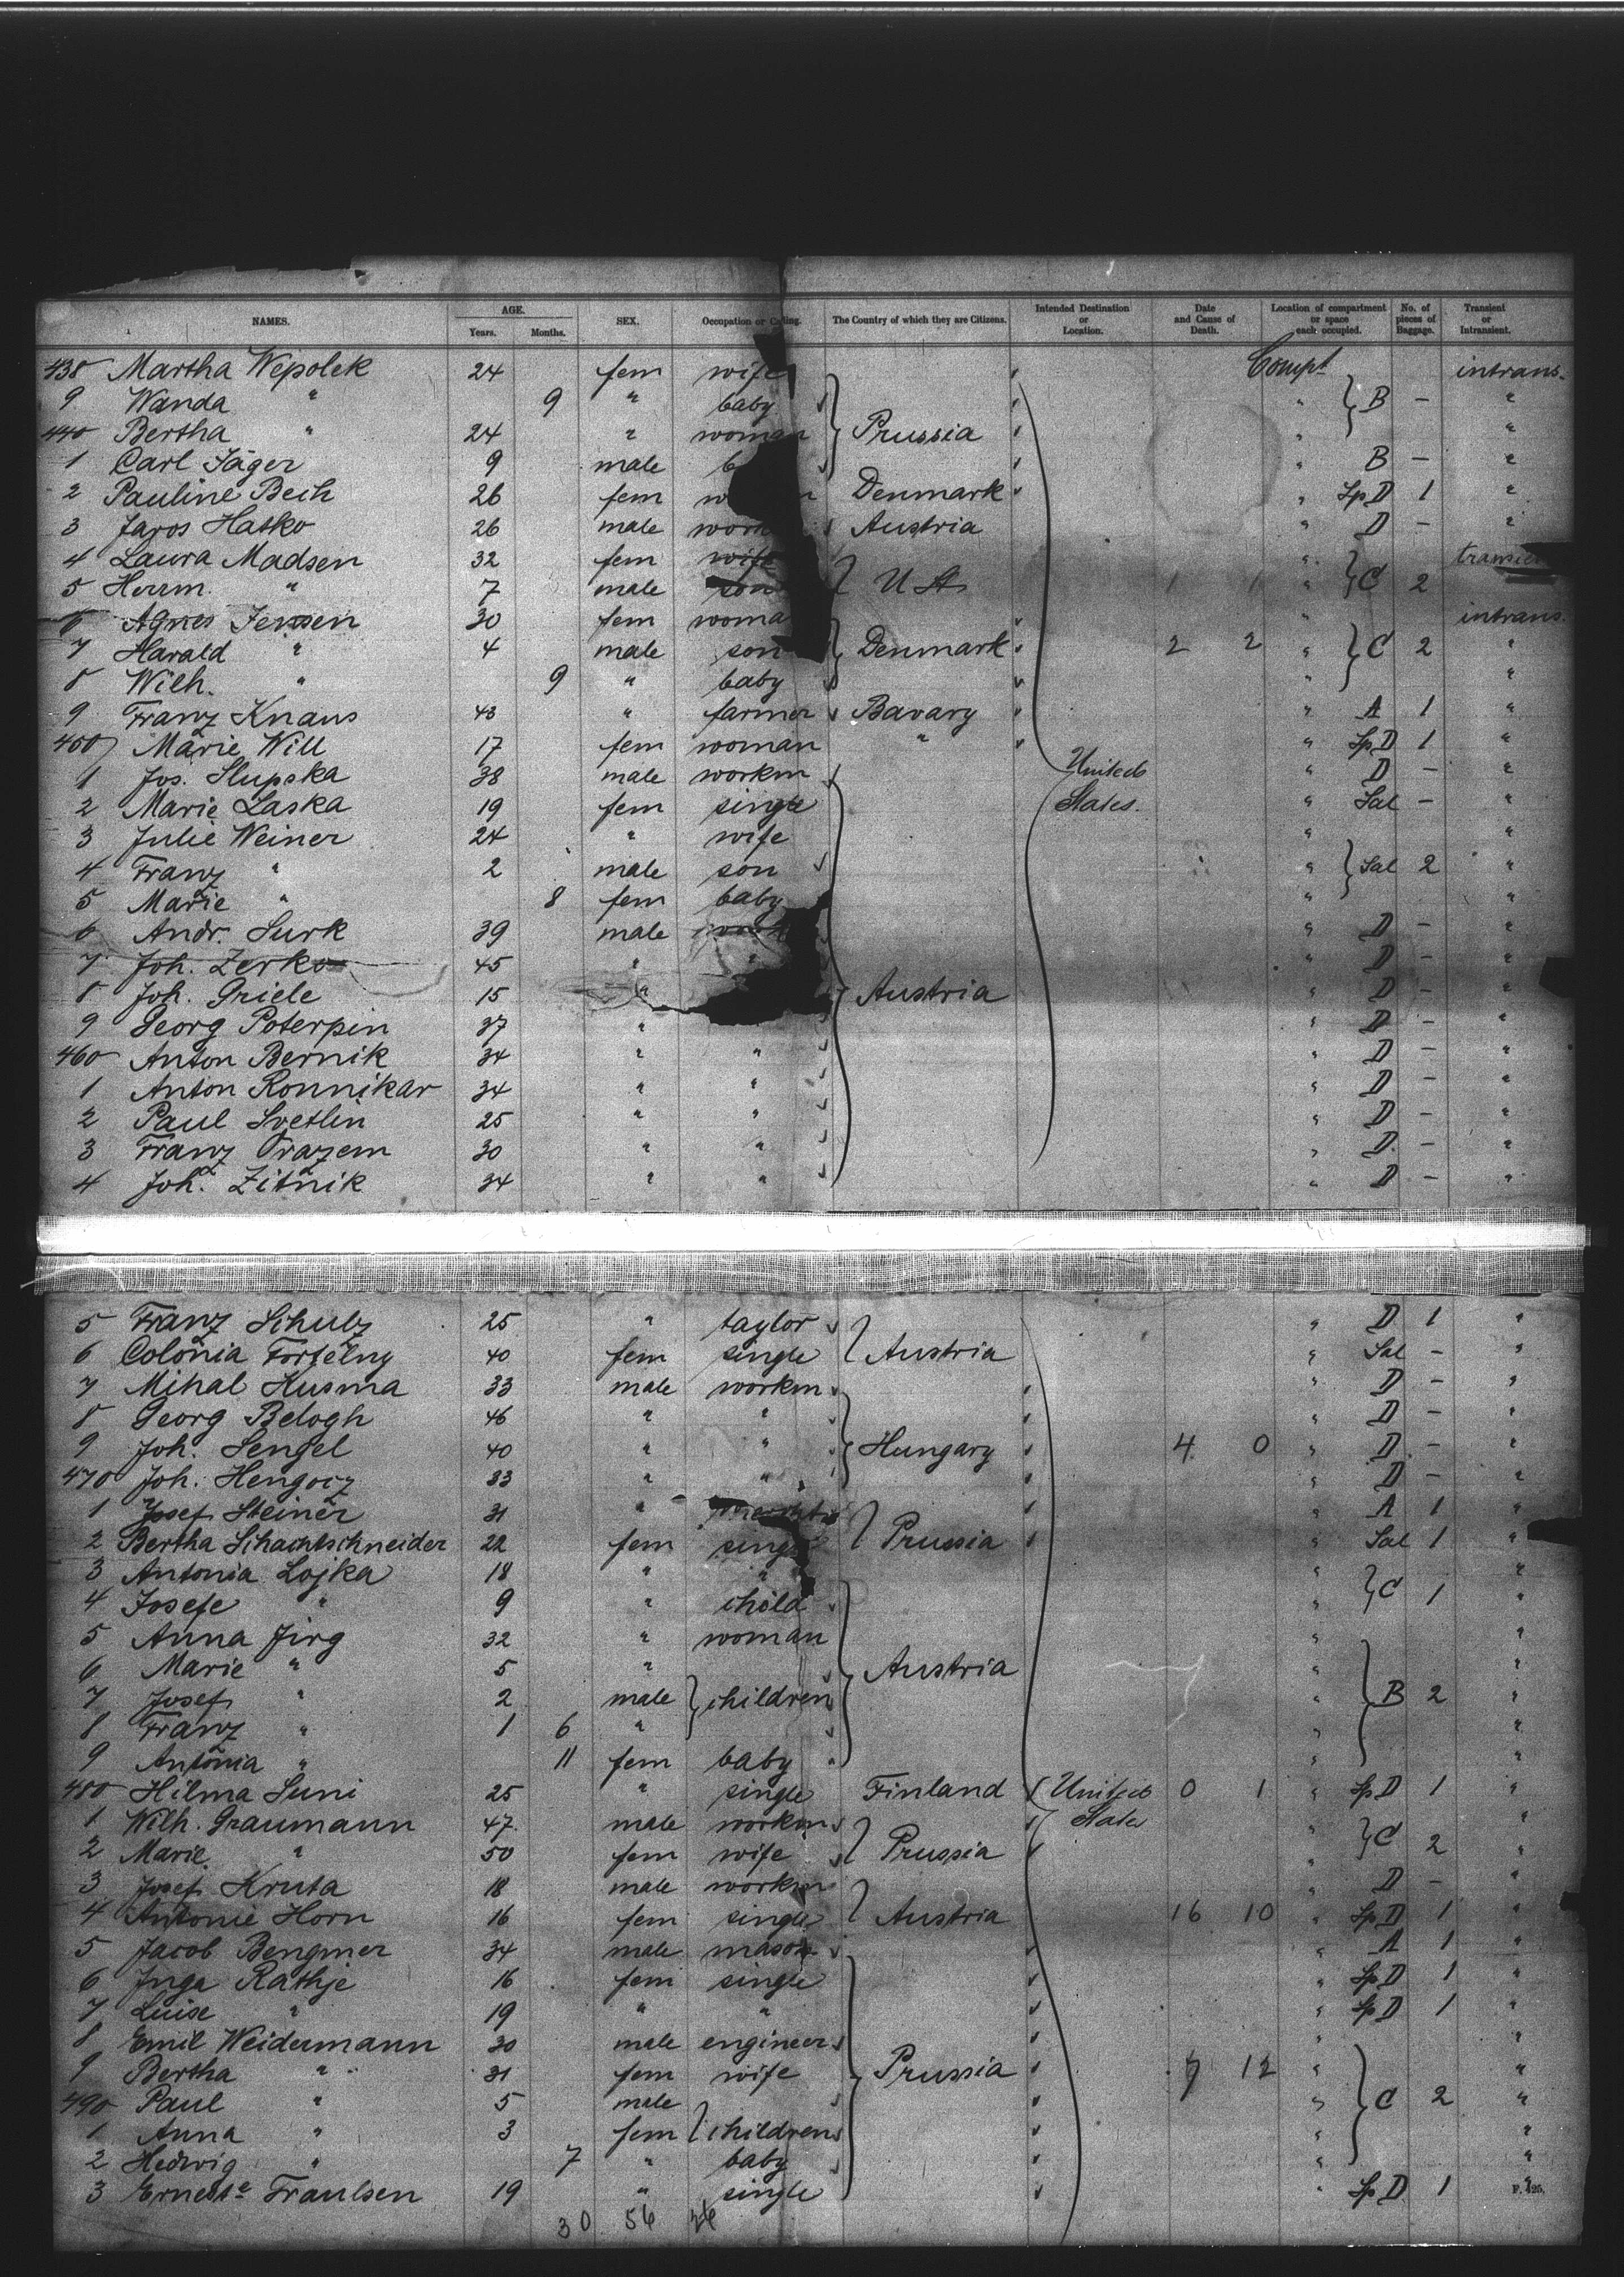 NAMES. AGE. Years. Months. SEX. Occupation or Calling. The Country of which they are Citizens. Intended Destination or Location. Date and Cause of Death. Location of compartment or space each occupied. No. of pieces of Baggage. Transient or Intransient.
438 Martha Wepolek 24 fem wife Compt intrans.
9 Wanda " 9 " baby " B - "
440 Bertha " 24 " woman Prussia " "
1 Carl Jäger 9 male " B - "
2 Pauline Bech 26 fem Denmark " Sp D 1 "
3 Jaros Hatko 26 male Austria " D - "
4 Laura Madsen 32 fem wife "
5 Herrm. " 7 male son U St " C 2
6 Agnes Jensen 30 fem woma " intrans.
7 Harald " 4 male son Denmark 2 2 " C 2 "
8 Wilh. " 9 " baby " "
9 Franz Knaus 43 " farmer Bavary " A 1 "
450 Marie Will 17 fem woman " " Sp D 1 "
1 Jos. Slupska 38 male workm United " D - "
2 Marie Laska 19 fem single States. " Sal - "
3 Julie Weiner 24 " wife " "
4 Franz " 2 male son " Sal 2 "
5 Marie " 8 fem baby " "
6 Andr. Surk 39 male " D - "
7 Joh. Zerko 45 " " " D - "
8 Joh. Griele 15 " Austria " D - "
9 Georg Poterpin 37 " " D - "
460 Anton Bernik 34 " " " D - "
1 Anton Ronnikar 34 " " " D - "
2 Paul Svetlin 25 " " " D - "
3 Franz Prazem 30 " " " D - "
4 Joh. Zitnik 34 " " " D - "
5 Franz Schulz 25 " taylor " D 1 "
6 Colonia Forfelny 40 fem single Austria " Sal - "
7 Mihal Kusma 33 male workm " D - "
8 Georg Belogh 46 " " " D - "
9 Joh. Lengel 40 " " Hungary 4 0 " D - "
470 Joh. Hengocz 33 " " " D - "
1 Josef Steiner 31 " " A 1 "
2 Bertha Schachtschneider 22 fem single Prussia " Sal 1 "
3 Antonia Lojka 18 " " " "
4 Josefe " 9 " child " C 1 "
5 Anna Jirg 32 " woman " "
6 Marie " 5 " Austria " "
7 Josef " 2 male children " B 2 "
8 Franz " 1 6 " " "
9 Antonia " 11 fem baby " "
480 Hilma Suni 25 " single Finland United 0 1 " Sp D 1 "
1 Wilh. Graumann 47 male workm States " "
2 Marie " 50 fem wife Prussia " C 2 "
3 Josef Kruta 18 male workm " D - "
4 Antonie Horn 16 fem single Austria 16 10 " Sp D 1 "
5 Jacob Bengmer 34 male mason " A 1 "
6 Inga Rathje 16 fem single " Sp D 1 "
7 Luise " 19 " " " Sp D 1 "
8 Emil Weidermann 30 male engineer " "
9 Bertha " 31 fem wife Prussia 7 12 " "
490 Paul " 5 male " C 2 "
1 Anna " 3 fem children " "
2 Hedwig " 7 " baby " "
3 Erneste Fraulsen 19 " single " Sp D 1
F. 425.
30 56